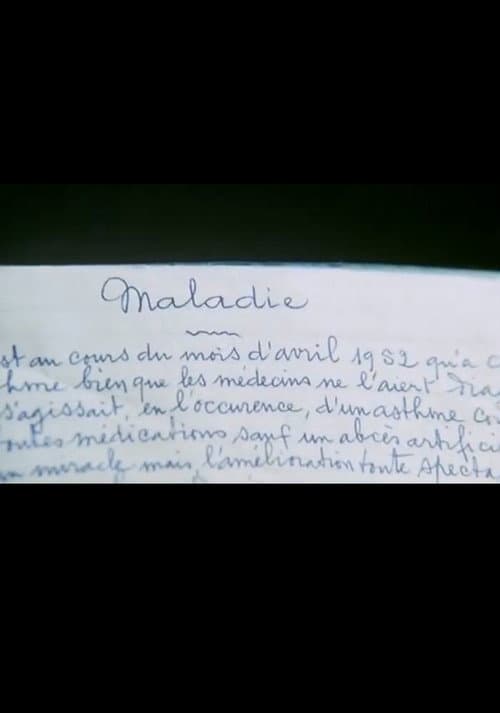 Maladie
st au cours du mois d'avril 1952 qu'a c
thme bien que les médecins ne l'aient dia
s'agissait, en l'occurence, d'un asthme co
toutes médications sauf un abcès artifici
un miracle mais l'amélioration toute specta